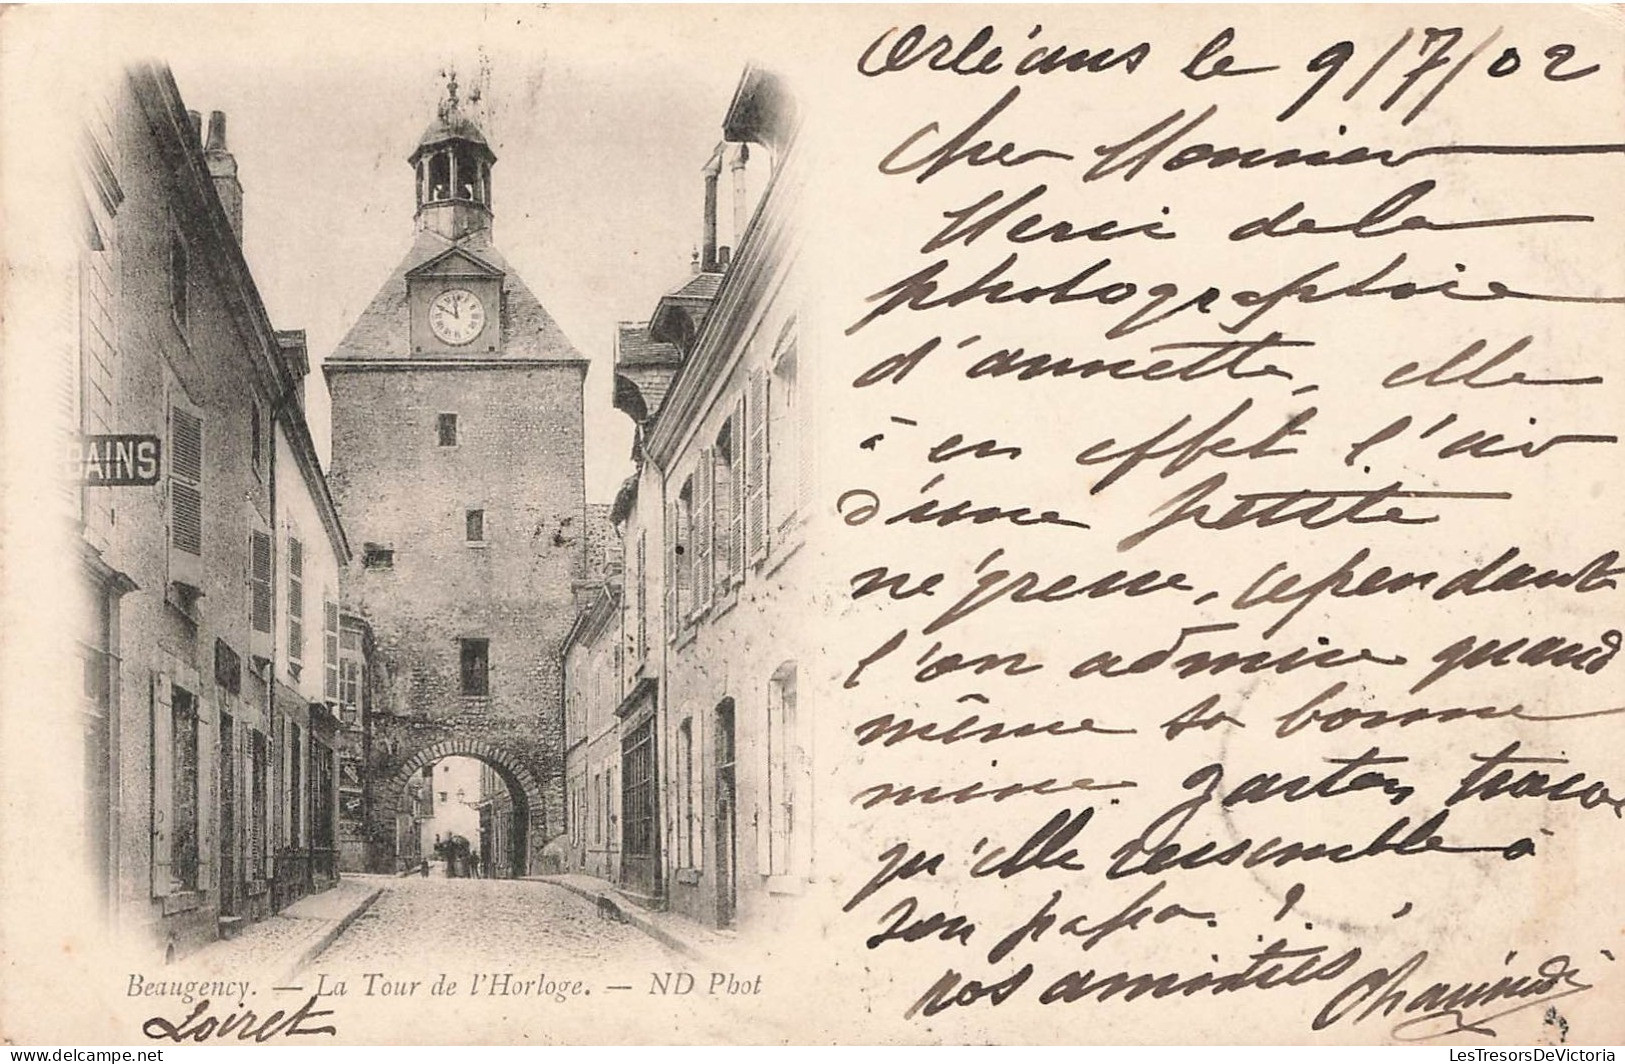 Orléans le 9/7/02
Cher Monsieur
Merci de la
photographie
d'annette, elle
à en effet l'air
d'une petite
négresse, cependant
l'on admire quand
même sa bonne
mine. Gaston trouve
qu'elle ressemble à
son papa. ?
nos amitiés
BAINS
Beaugency. — La Tour de l'Horloge. — ND Phot
Loiret
LesTresorsDeVictoria